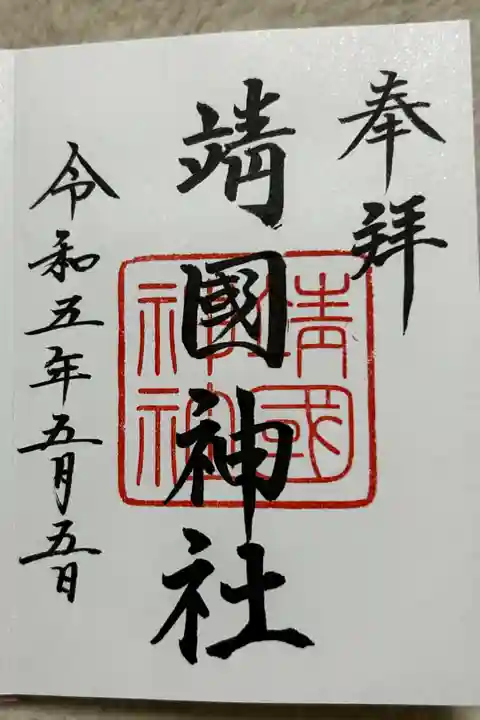 奉拜
靖國神社
靖國神社
令和五年五月五日